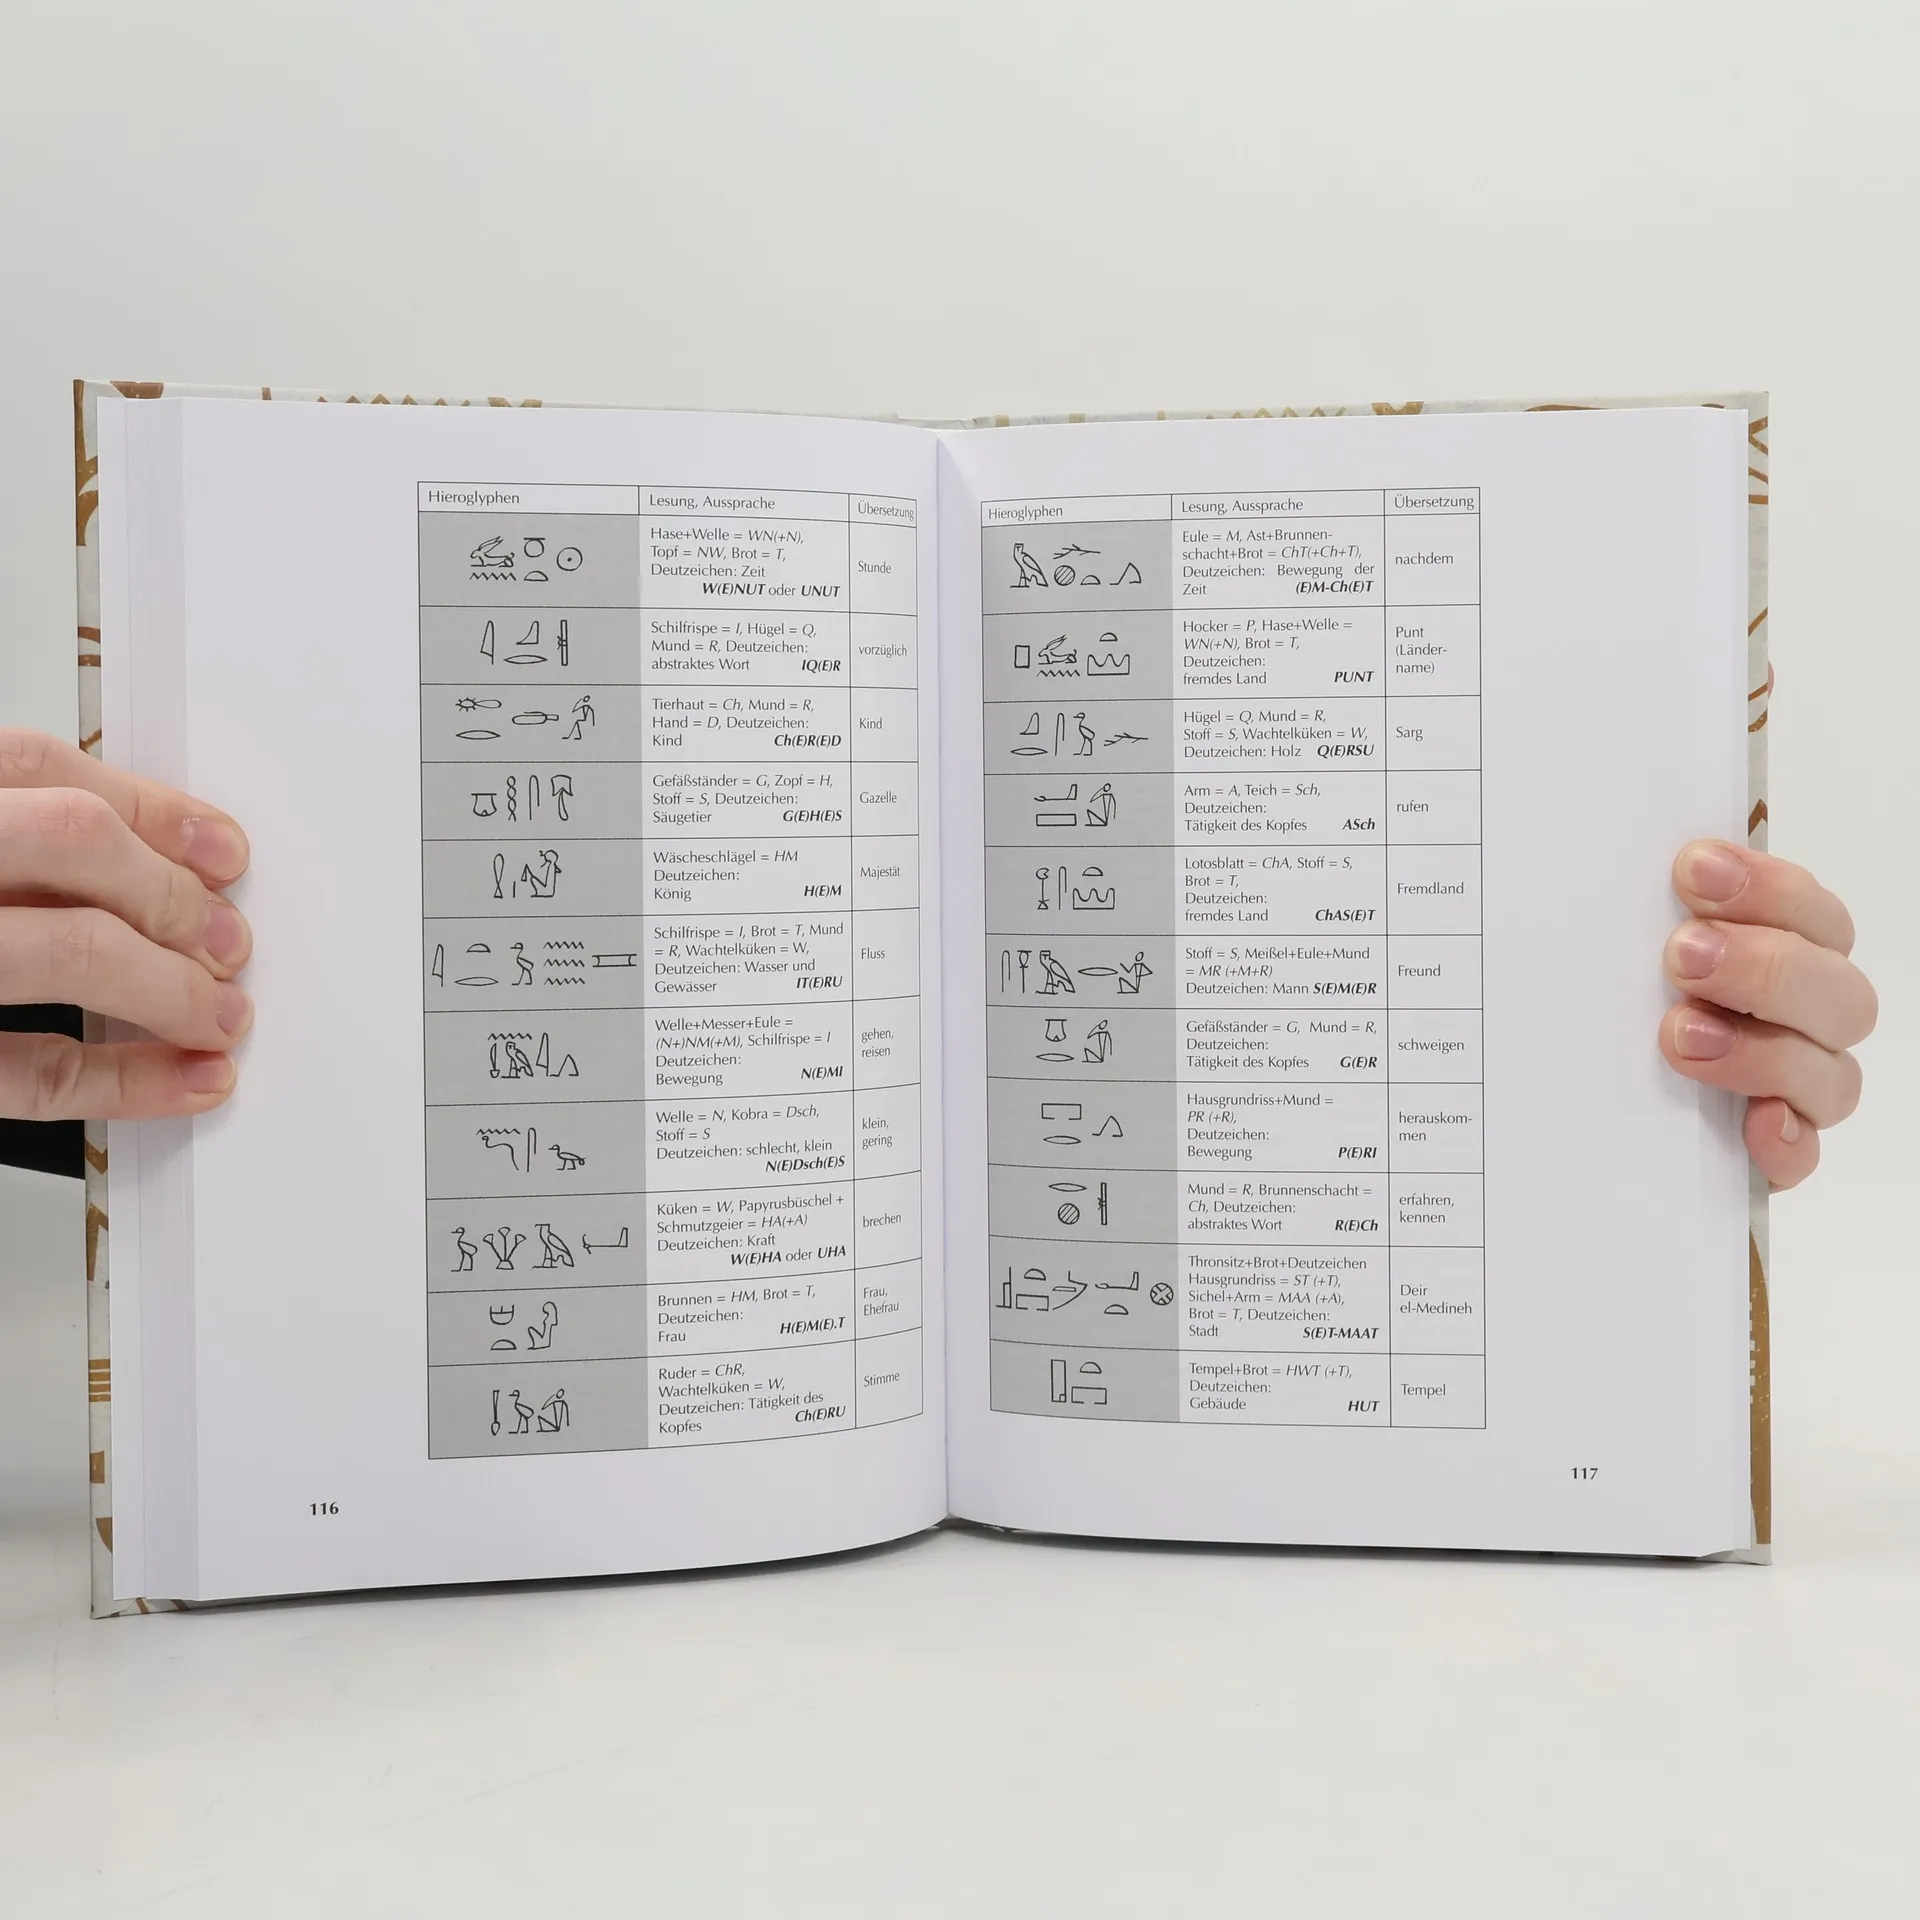 Hieroglyphen Lesung, Aussprache Übersetzung
Hase+Welle = WN(+N),
Topf = NW, Brot = T,
Deutzeichen: Zeit
W(E)NUT oder UNUT
Stunde
Schilfrispe = I, Hügel = Q,
Mund = R, Deutzeichen:
abstraktes Wort IQ(E)R
vorzüglich
Tierhaut = Ch, Mund = R,
Hand = D, Deutzeichen:
Kind Ch(E)R(E)D
Kind
Gefäßständer = G, Zopf = H,
Stoff = S, Deutzeichen:
Säugetier G(E)H(E)S
Gazelle
Wäscheschlägel = HM
Deutzeichen:
König H(E)M
Majestät
Schilfrispe = I, Brot = T, Mund
= R, Wachtelküken = W,
Deutzeichen: Wasser und
Gewässer IT(E)RU
Fluss
Welle+Messer+Eule =
(N+)NM(+M), Schilfrispe = I
Deutzeichen:
Bewegung N(E)MI
gehen,
reisen
Welle = N, Kobra = Dsch,
Stoff = S
Deutzeichen: schlecht, klein
N(E)Dsch(E)S
klein,
gering
Küken = W, Papyrusbüschel +
Schmutzgeier = HA(+A)
Deutzeichen: Kraft
W(E)HA oder UHA
brechen
Brunnen = HM, Brot = T,
Deutzeichen:
Frau H(E)M(E).T
Frau,
Ehefrau
Ruder = ChR,
Wachtelküken = W,
Deutzeichen: Tätigkeit des
Kopfes Ch(E)RU
Stimme
116
Hieroglyphen Lesung, Aussprache Übersetzung
Eule = M, Ast+Brunnen-
schacht+Brot = ChT(+Ch+T),
Deutzeichen: Bewegung der
Zeit (E)M-Ch(E)T
nachdem
Hocker = P, Hase+Welle =
WN(+N), Brot = T,
Deutzeichen:
fremdes Land PUNT
Punt
(Länder-
name)
Hügel = Q, Mund = R,
Stoff = S, Wachtelküken = W,
Deutzeichen: Holz Q(E)RSU
Sarg
Arm = A, Teich = Sch,
Deutzeichen:
Tätigkeit des Kopfes ASch
rufen
Lotosblatt = ChA, Stoff = S,
Brot = T,
Deutzeichen:
fremdes Land ChAS(E)T
Fremdland
Stoff = S, Meißel+Eule+Mund
= MR (+M+R)
Deutzeichen: Mann S(E)M(E)R
Freund
Gefäßständer = G, Mund = R,
Deutzeichen:
Tätigkeit des Kopfes G(E)R
schweigen
Hausgrundriss+Mund =
PR (+R),
Deutzeichen:
Bewegung P(E)RI
herauskom-
men
Mund = R, Brunnenschacht =
Ch, Deutzeichen:
abstraktes Wort R(E)Ch
erfahren,
kennen
Thronsitz+Brot+Deutzeichen
Hausgrundriss = ST (+T),
Sichel+Arm = MAA (+A),
Brot = T, Deutzeichen:
Stadt S(E)T-MAAT
Deir
el-Medineh
Tempel+Brot = HWT (+T),
Deutzeichen:
Gebäude HUT
Tempel
117